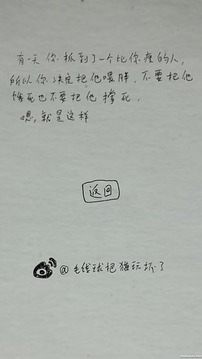 有一天你抓到了一个比你瘦的人，
所以你决定把他喂胖，不要把他
饿死也不要把他撑死，
嗯，就是这样
返回
@毛线球把猫玩坏了